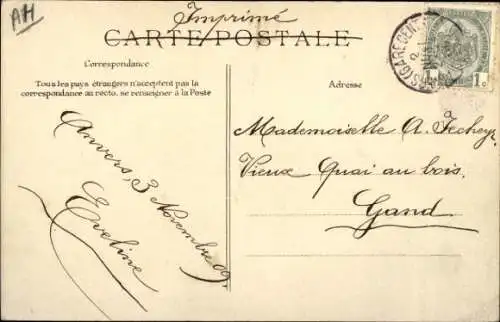 AH
Imprimé
CARTE POSTALE
Correspondance
Tous les pays étrangers n'acceptent pas la
correspondance au recto, se renseigner à la Poste
Anvers, 3 Novembre 09
Eveline
Adresse
à
Mademoiselle A. Fecheyr
Vieux Quai au bois.
Gand
1c